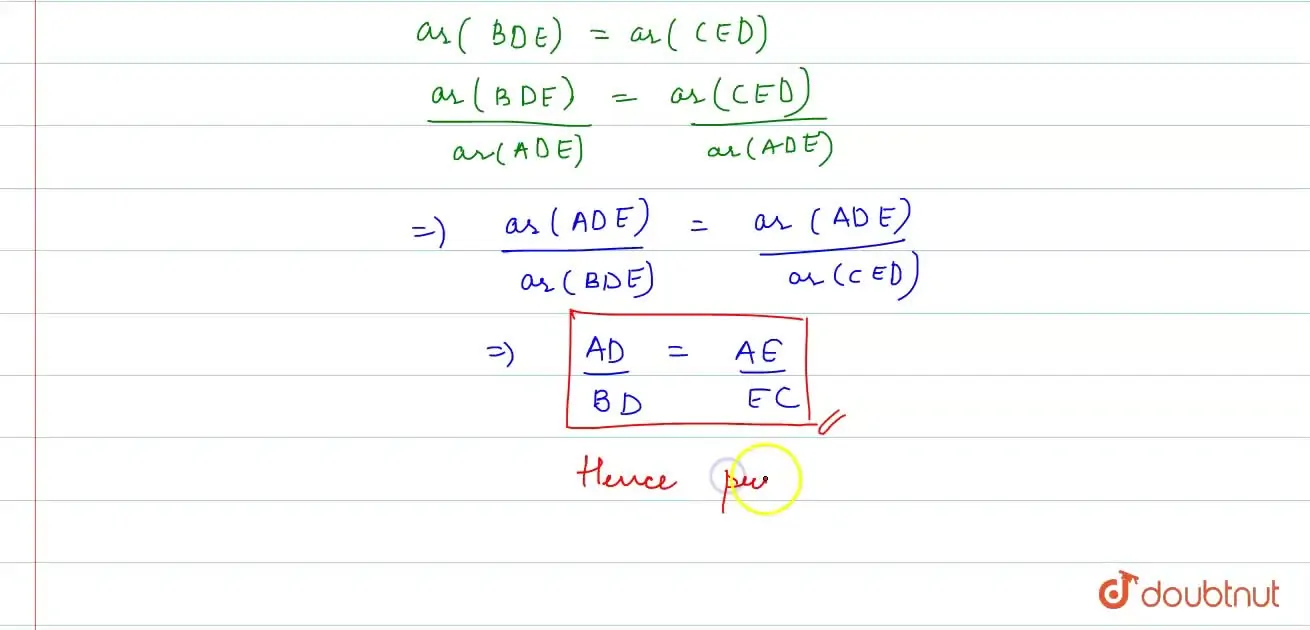 ar(BDE) = ar(CED)
ar(BDE)/ar(ADE) = ar(CED)/ar(ADE)
=) ar(ADE)/ar(BDE) = ar(ADE)/ar(CED)
=) AD/BD = AE/EC
Hence
doubtnut